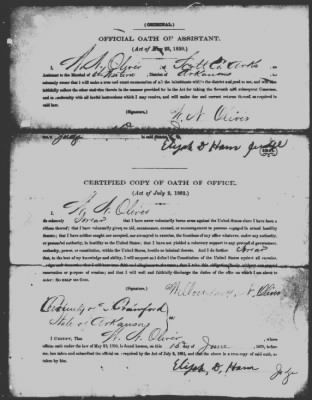 (ORIGINAL.)
OFFICIAL OATH OF ASSISTANT.
(Act of May 23, 1850.)
I, W. N. Oliver of Scott Co Arks
Assistant to the Marshal of the Western District of Arkansas
solemnly swear that I will make a true and exact enumeration of all the inhabitants within the district assigned to me, and will also
faithfully collect the other statistics therein in the manner provided for in the Act for taking the seventh and subsequent Censuses,
and in conformity with all lawful instructions which I may receive, and will make due and correct returns thereof as required in
said law.
(Signature,) W. N. Oliver
Elijah D. Ham Judge
CERTIFIED COPY OF OATH OF OFFICE.
(Act of July 2, 1862.)
I, W. N. Oliver
do solemnly Swear that I have never voluntarily borne arms against the United States since I have been a
citizen thereof; that I have voluntarily given no aid, countenance, counsel, or encouragement to persons engaged in armed hostility
thereto; that I have neither sought nor accepted, nor attempted to exercise, the functions of any office whatever, under any authority,
or pretended authority, in hostility to the United States; that I have not yielded a voluntary support to any pretended government,
authority, power, or constitution, within the United States, hostile or inimical thereto. And I do further Swear
that, to the best of my knowledge and ability, I will support and defend the Constitution of the United States against all enemies,
reservation or purpose of evasion; and that I will well and faithfully discharge the duties of the office on which I am about to
enter: So help me God.
(Signature,) N. Oliver
County of Crawford
State of Arkansas
I CERTIFY, That W. N. Oliver whose
official oath under the law of May 23, 1850, is found hereon, on this 15 day of June 1870, before
me, has taken and subscribed the official oath required by the Act of July 2, 1862, and that the above is a true copy of said oath, as
taken by him.
Elijah, D. Ham
Judge